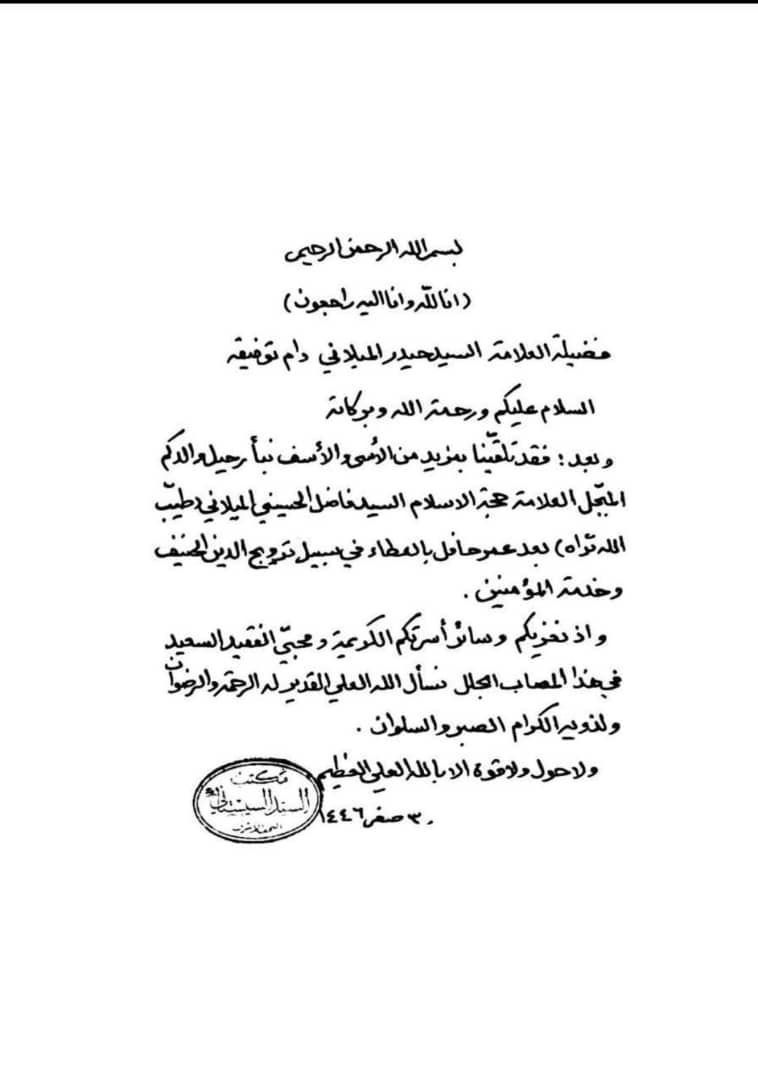 بسم الله الرحمن الرحيم
(انا لله وانا اليه راجعون)
فضيلة العلامة السيد حيدر الميلاني دام توفيقه
السلام عليكم ورحمة الله وبركاته
وبعد: فقد تلقّينا بمزيد من الأسى والأسف نبأ رحيل والدكم
المبجّل العلامة حجة الاسلام السيد فاضل الحسيني الميلاني (طيّب
الله ثراه) بعد عمر حافل بالعطاء في سبيل ترويج الدين الحنيف
وخدمة المؤمنين.
واذ نعزيكم وسائر أسرتكم الكريمة ومحبّي الفقيد السعيد
في هذا المصاب الجلل نسأل الله العلي القدير له الرحمة والرضوان
ولذويه الكرام الصبر والسلوان.
ولا حول ولا قوة الا بالله العلي العظيم
٣٠ صفر ١٤٤٦
مكتب
السيد السيستاني
النجف الاشرف